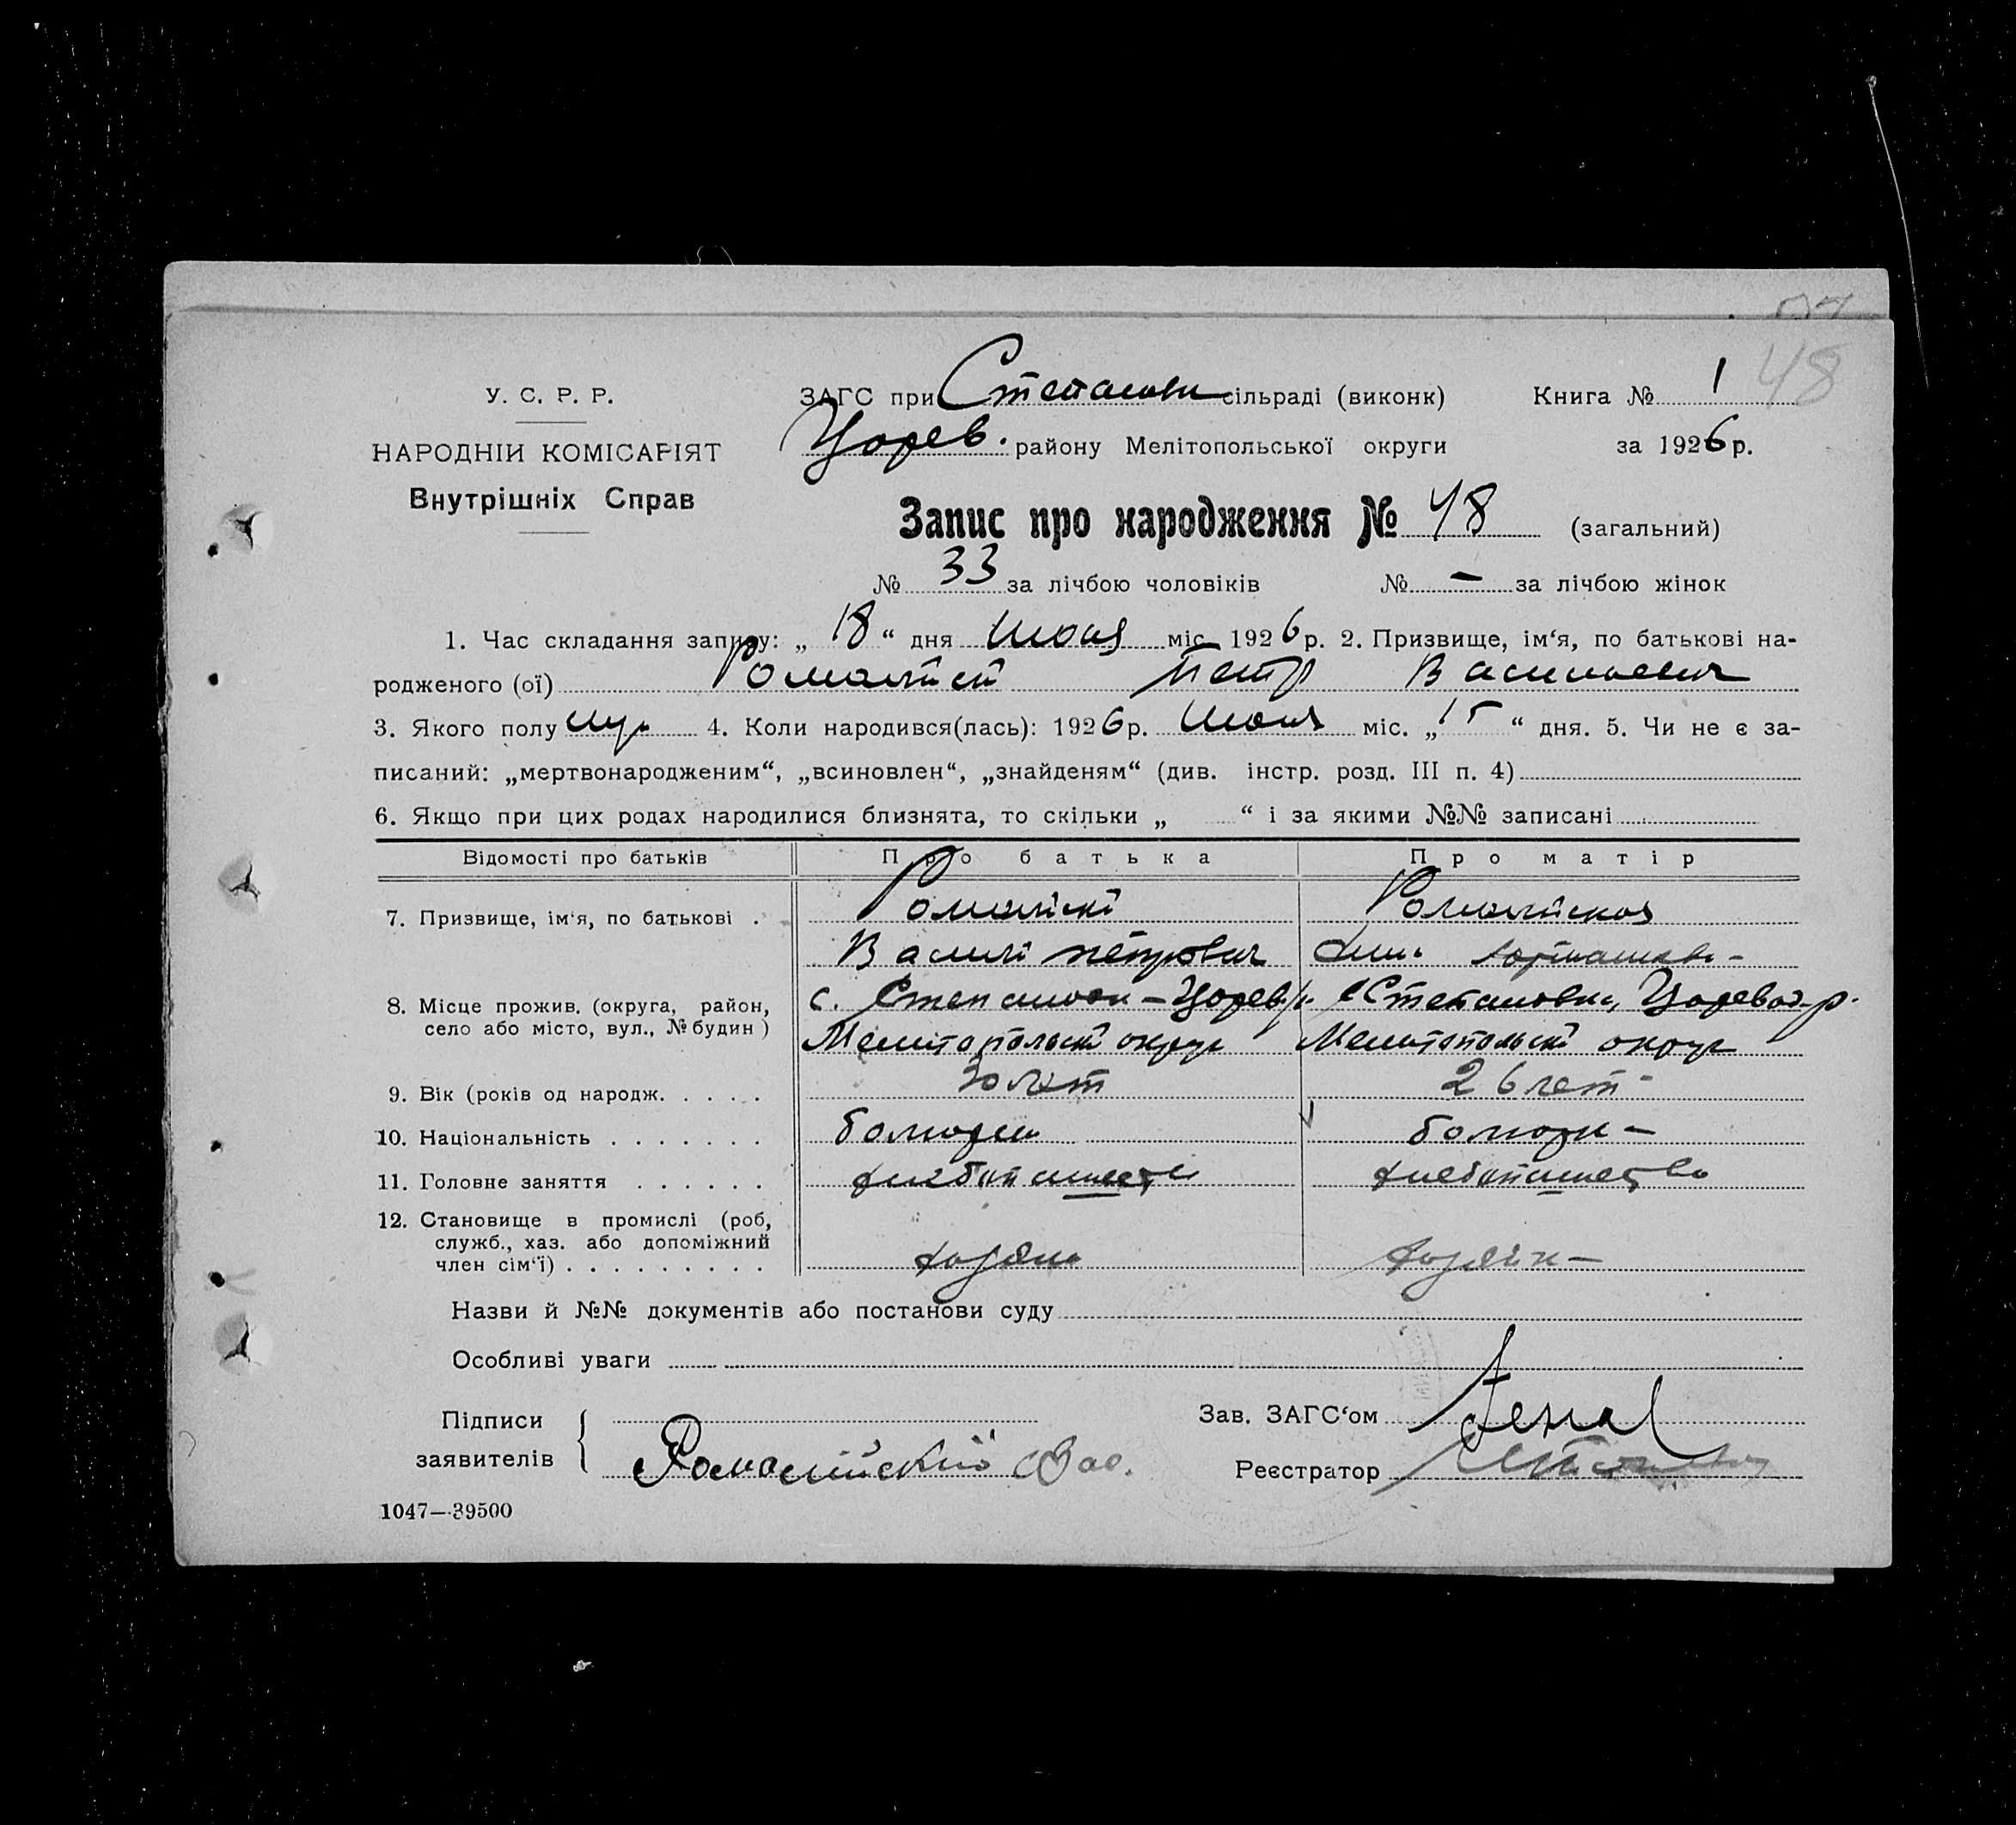 48
У. С. Р. Р.
ЗАГС при Степанови сільраді (виконк) Книга № 1
Цорев. району Мелітопольської округи за 1926 р.
НАРОДНІЙ КОМІСАРІЯТ
Внутрішніх Справ
Запис про народження № 48 (загальний)
№ 33 за лічбою чоловіків № — за лічбою жінок
1. Час складання запису: „ 18 “ дня Июня міс. 1926 р. 2. Призвище, ім‘я, по батькові на-
родженого (ої) Петр Васильевич
3. Якого полу муж 4. Коли народився(лась): 1926 р. Июня міс. „ 15 “ дня. 5. Чи не є за-
писаний: „мертвонародженим“, „всиновлен“, „знайденям“ (див. інстр. розд. III п. 4)
6. Якщо при цих родах народилися близнята, то скільки „ “ і за якими №№ записані
Відомості про батьків Про батька Про матір
7. Призвище, ім‘я, по батькові .
Василий Петрович
8. Місце прожив. (округа, район,
село або місто, вул., № будин )
с. Степановки – Цорев. р. с Степановка, Цоревод. р.
Мелитопольский округ Мелитопольский округ
9. Вік (років од народж. . . . . 30 лет 26 лет
10. Національність . . . . . . . болгари болгари –
11. Головне заняття . . . . . . хлебопашество хлебопашество
12. Становище в промислі (роб,
служб., хаз. або допоміжний
член сім‘ї) . . . . . . . . . хозяин хозяйк –
Назви й №№ документів або постанови суду
Особливі уваги
Підписи
заявителів
Зав. ЗАГС‘ом
Реєстратор
1047—39500